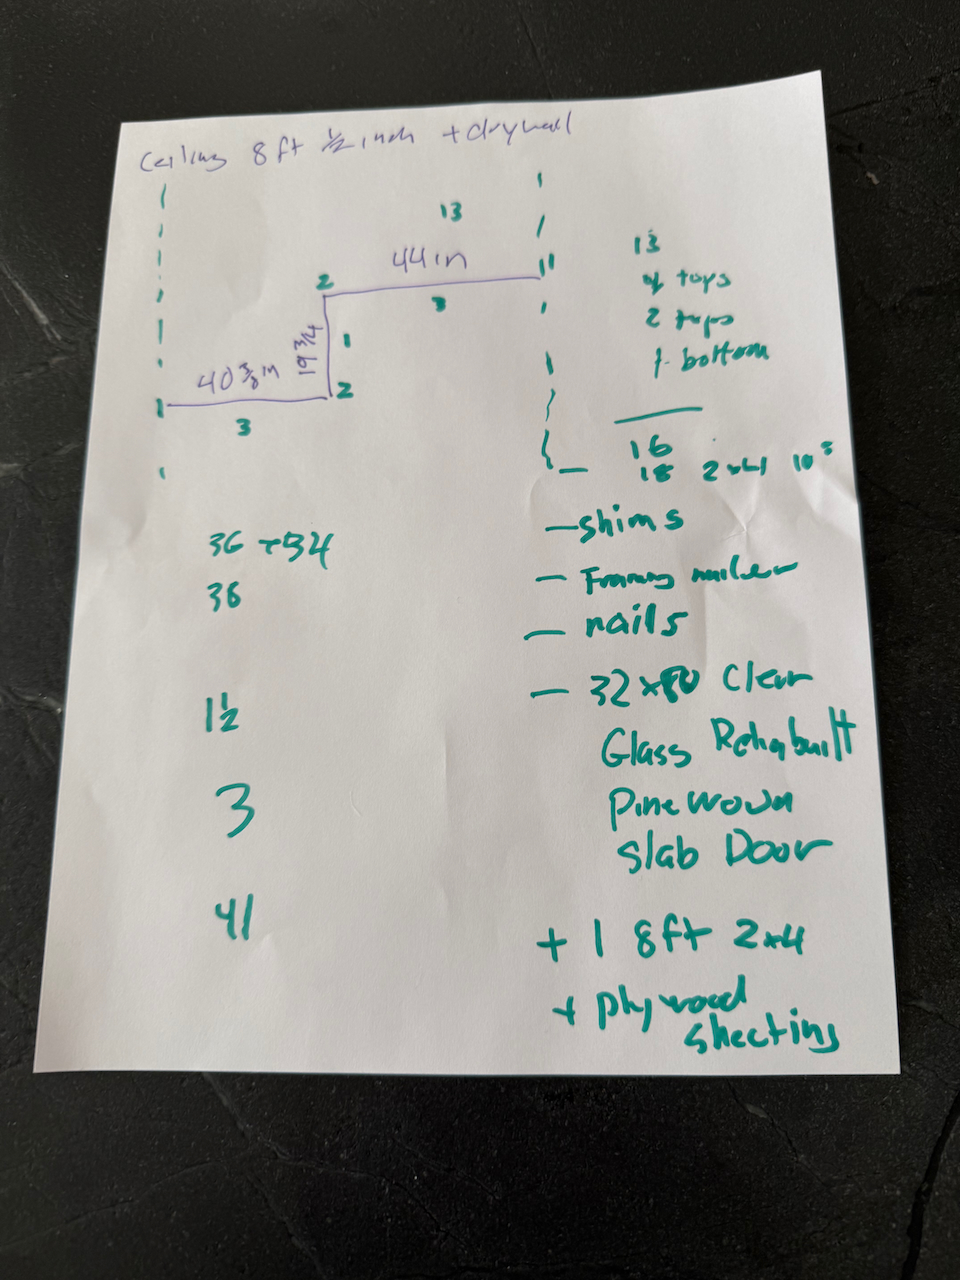 Ceiling 8 ft ½ inch + drywall
13
44 in
2
3
19 ¾
1
40 ⅜ in
2
3
13
4 tops
2 tops
1 bottom
16
18 2x4 10s
- shims
- Framing nailer
- nails
- 32x80 Clear
Glass
Pine
Slab Door
+ 1 8ft 2x4
+ plywood
sheeting
36
36
1½
3
41